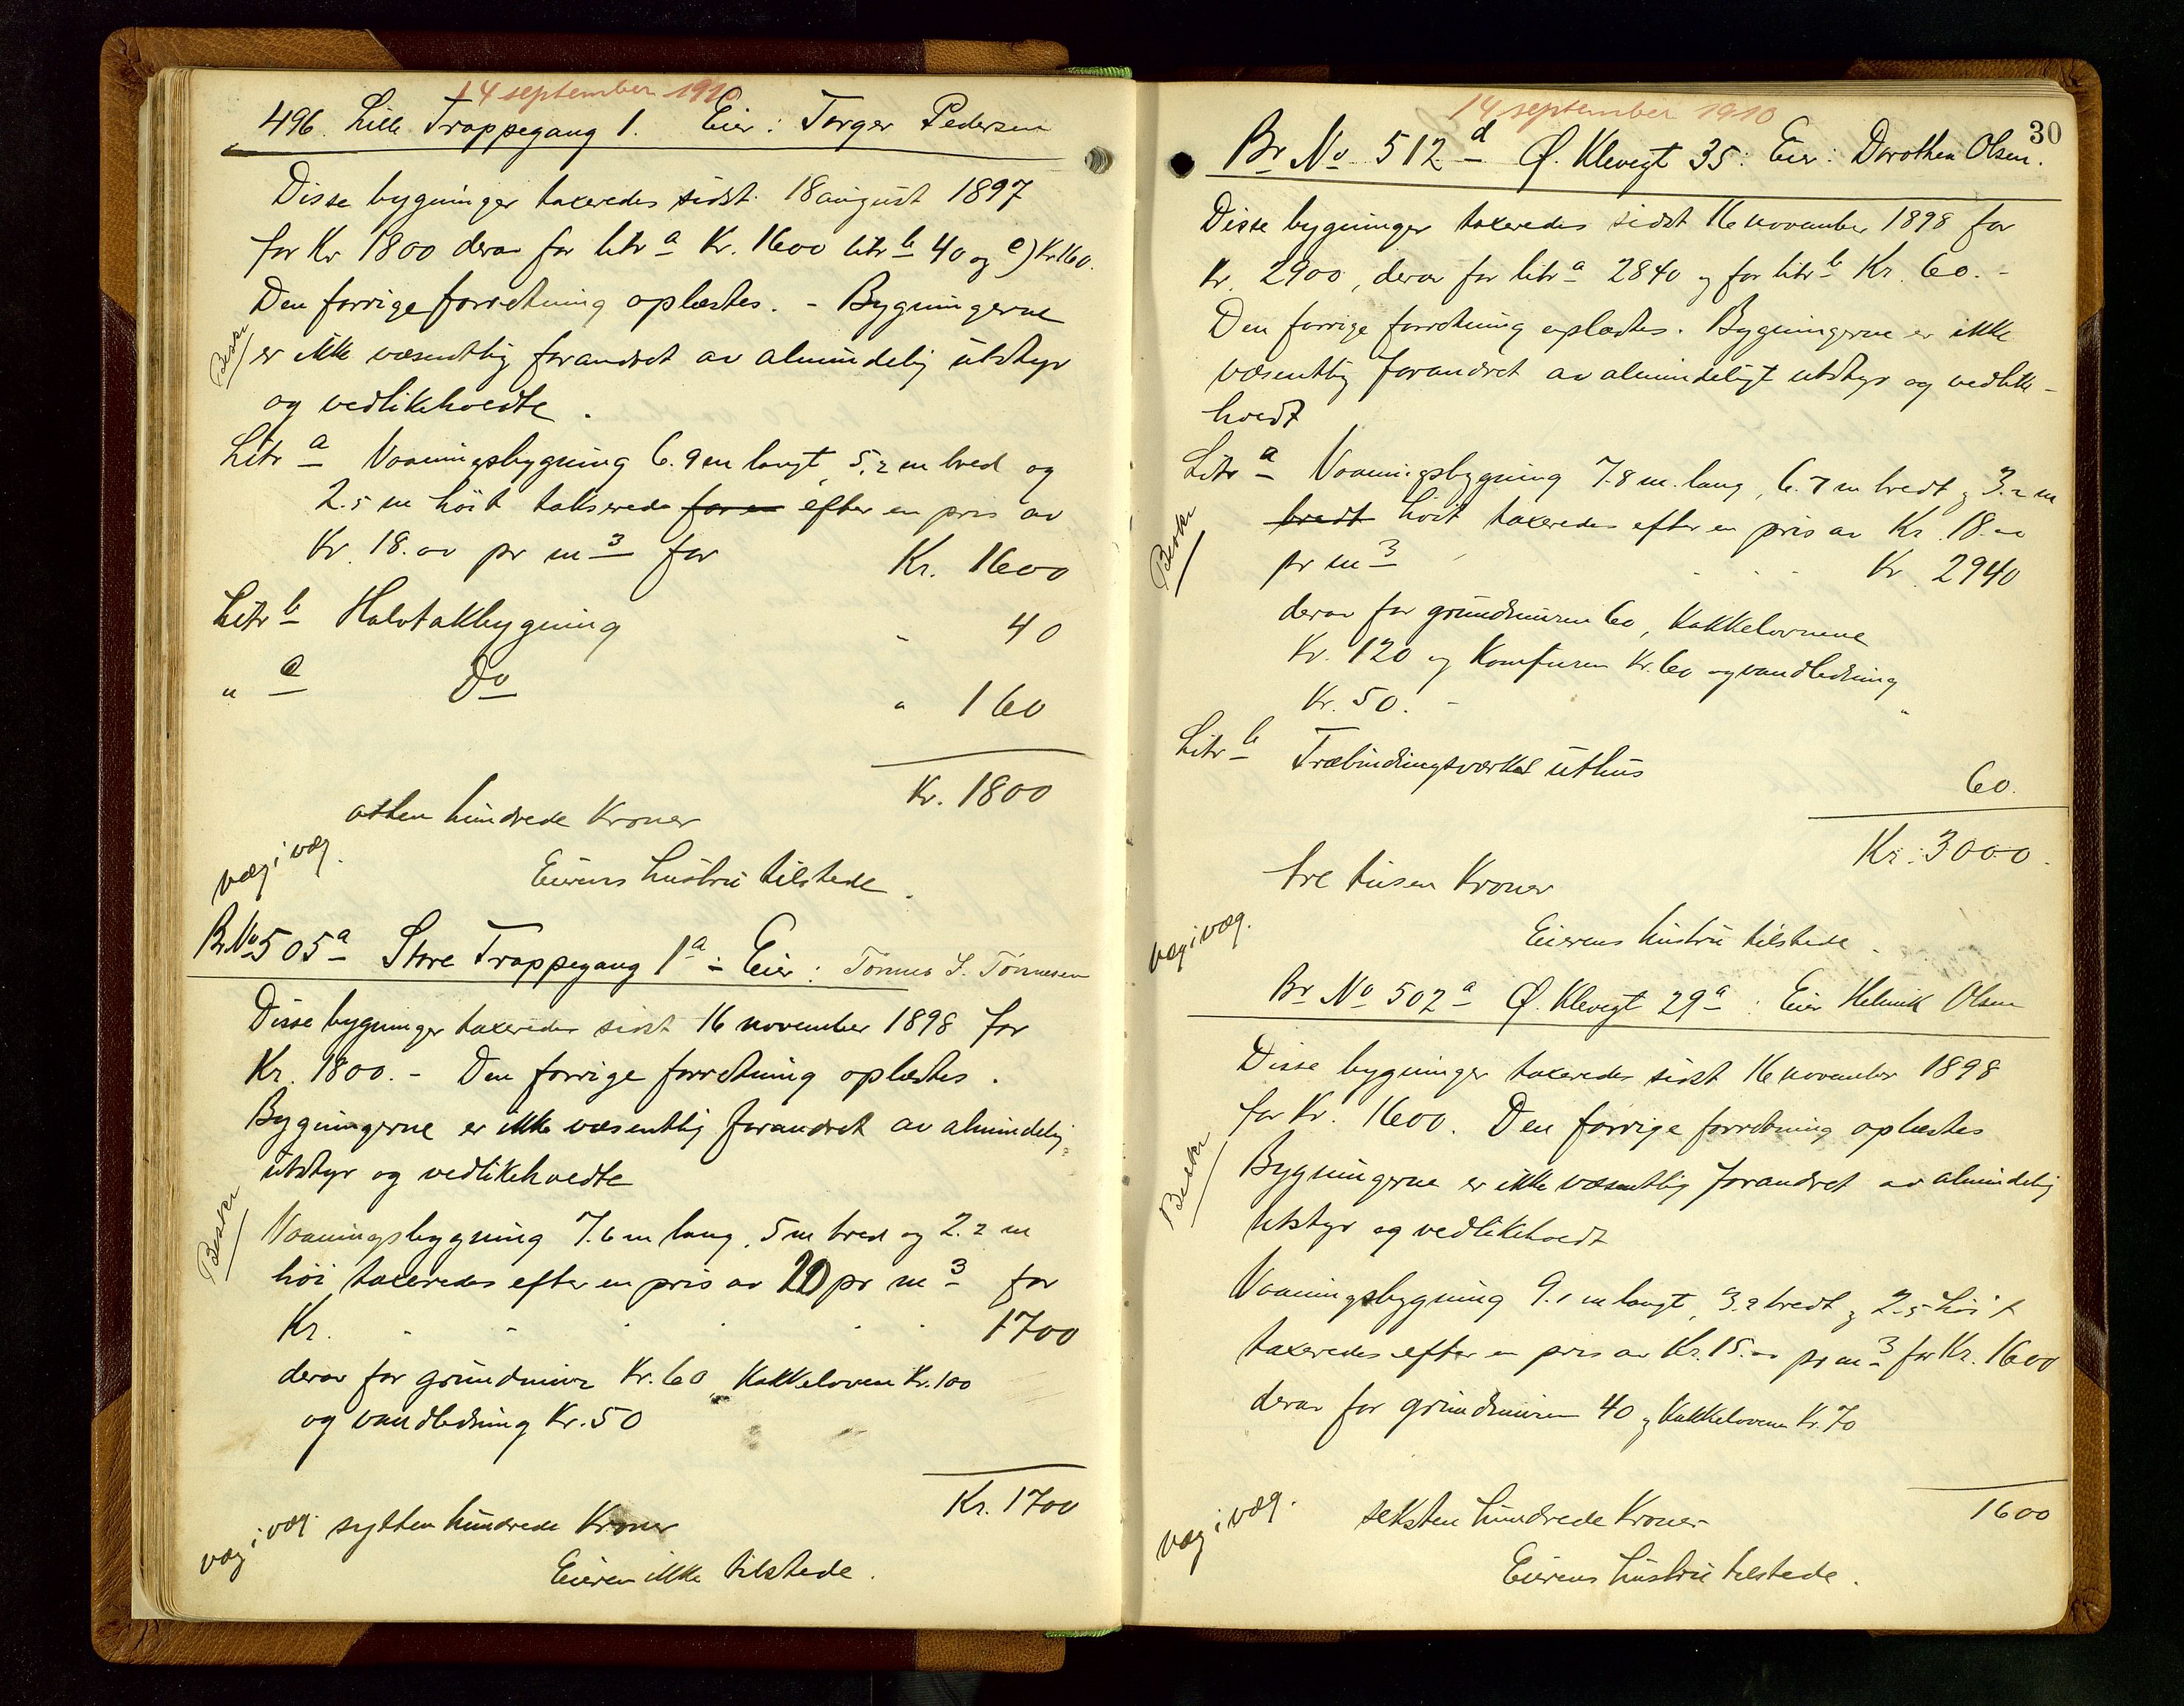 14 september 1910
496. Lille Trappegang 1. Eier: Torger Pedersen
Disse bygninger taxeredes sidst 18 august 1897
for Kr 1800 derav for litr a Kr. 1600 litr b 40 og c) Kr 160.
Den forrige forretning oplæstes. - Bygningerne
Beskr er ikke væsentlig forandret av almindelig utstyr
og vedlikeholdte.
Litr a Vaaningsbygning 6.9 m langt, 5,2 m bred og
2.5 m höit takseredes for en efter en pris av
Kr. 18.00 pr m3 for Kr. 1600
Litr b Halvtakbygning - 40
" c Do " 160
Kr. 1800
atten hundrede Kroner
væg i væg. Eierens hustru tilstede.
Br No 505a Store Trappegang 1a : Eier: Tønnes S. Tønnesen
Disse bygninger taxeredes sidst 16 november 1898 for
Kr. 1800. - Den forrige forretning oplæstes.
Bygningerne er ikke væsentlig forandret av almindelig
utstyr og vedlikeholdte
Beskr Vaaningsbygning 7.6 m lang, 5 m bred og 2.2 m
höi taxeredes efter en pris av 20 pr m3 for
Kr. - - - - - 1700
derav for grundmur Kr. 60, Kakkeloven Kr. 100
og vandledning Kr. 50
Kr. 1700
væg i væg. sytten hundrede Kroner
Eieren ikke tilstede.
30
14 september 1910
Br No 512 d Ø. Klevegt 35: Eier: Dorothea Olsen.
Disse bygninger taxeredes sidst 16 november 1898 for
Kr. 2900, derav for litr a 2840 og for litr b Kr. 60. -
Den forrige forretning oplæstes. Bygningerne er ikke
væsentlig forandret av almindeligt utstyr og vedlike-
holdt
Litr a Vaaningsbygning 7.8 m. lang, 6.7 m bredt og 3.2 m
Beskr bredt höit taxeredes efter en pris av Kr. 18.00
pr m3 - - - Kr. 2940
derav for grundmuren 60, Kakkelovnene
Kr. 120 og Komfuren Kr. 60 og vandledning
Kr. 50. -
Litr b Træbindingsværks uthus 60.
Kr. 3000.
tre tusen Kroner
væg i væg. Eierens hustru tilstede.
Br No 502 a Ø. Klevegt 29a : Eier Helmik Olsen
Disse bygninger taxeredes sidst 16 november 1898
for Kr. 1600. Den forrige forretning oplæstes
Beskr Bygningerne er ikke væsentlig forandret av almindelig
utstyr og vedlikeholdt
Vaaningsbygning 9.1 m langt, 3.9 bredt og 2.5 höit
taxeredes efter en pris av Kr. 15.00 pr m3 for Kr. 1600
derav for grundmuren 40 og Kakkelovnen Kr. 70
1600
væg i væg. seksten hundrede Kroner
Eierens hustru tilstede.